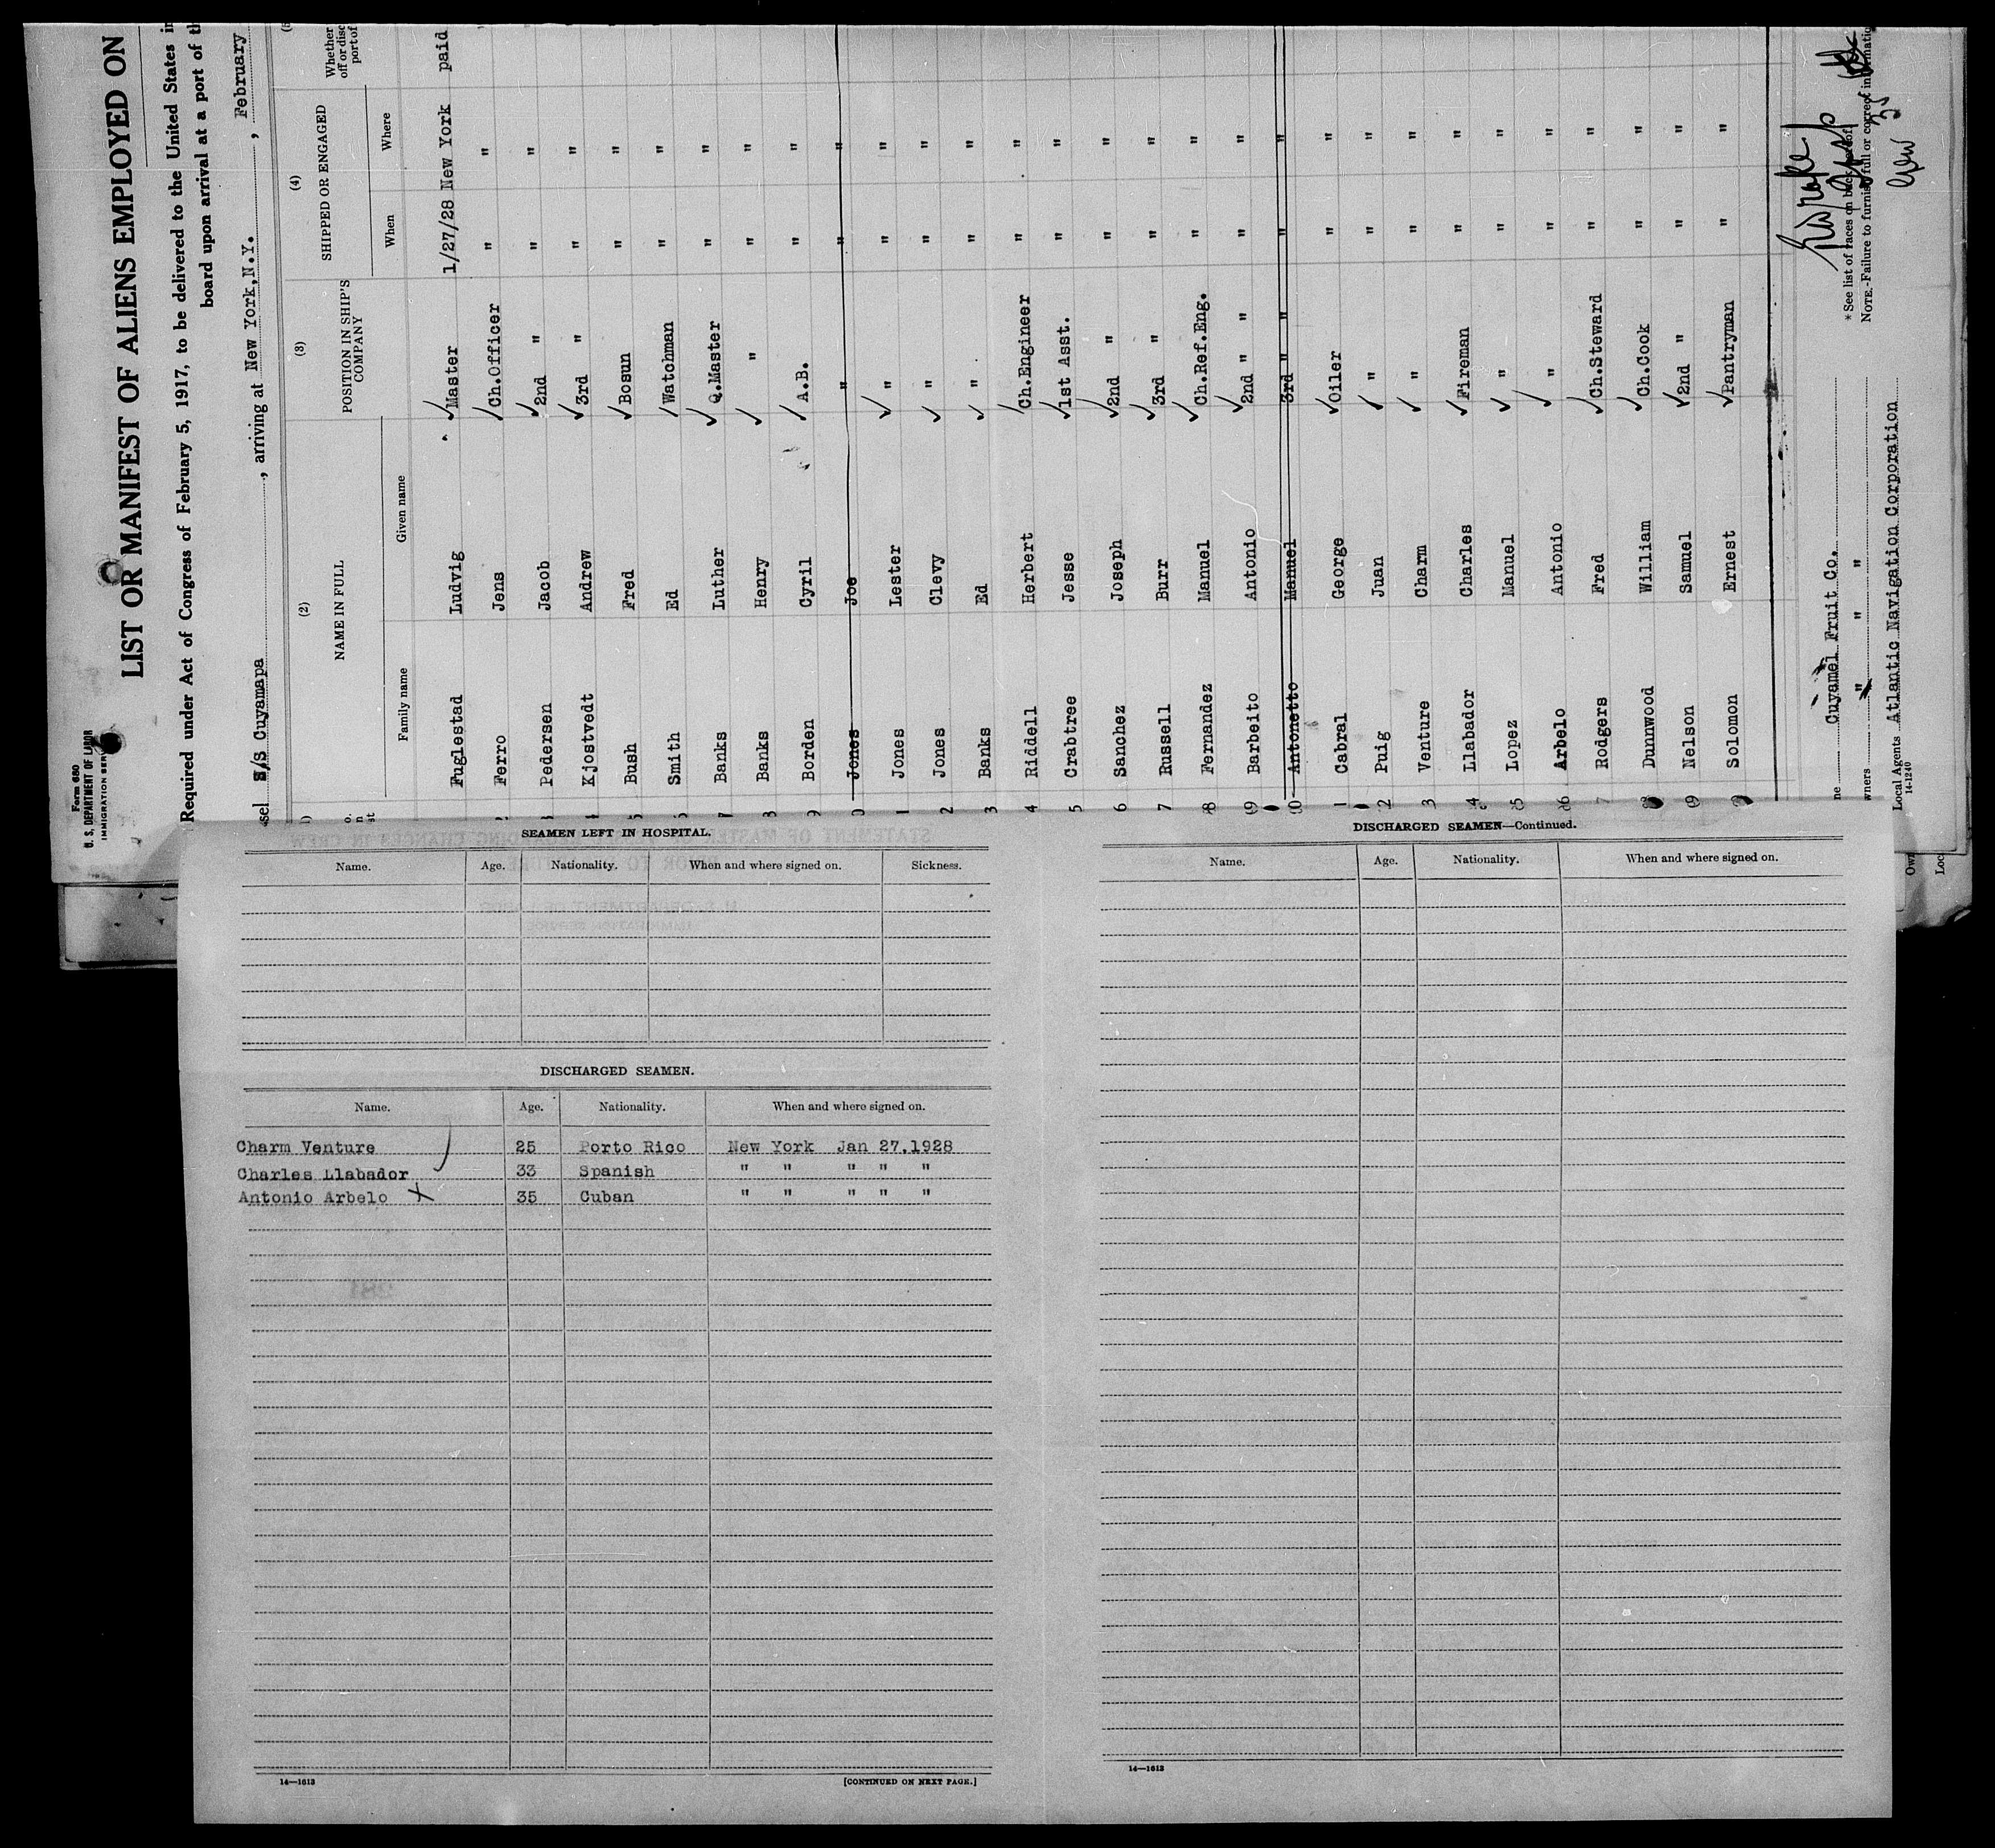 Form 680
U. S. DEPARTMENT OF LABOR
IMMIGRATION SERVICE
LIST OR MANIFEST OF ALIENS EMPLOYED ON
Required under Act of Congress of February 5, 1917, to be delivered to the United States
board upon arrival at a port of
S/S Cuyamapa, arriving at New York, N.Y., February
(2) (3) (4)
NAME IN FULL POSITION IN SHIP'S COMPANY SHIPPED OR ENGAGED Whether
Family name Given name When Where
Fuglestad Ludvig Master 1/27/28 New York paid
Ferro Jens Ch.Officer " "
Pedersen Jacob 2nd " " "
Kjostvedt Andrew 3rd " " "
Bush Fred Bosun " "
6 Smith Ed Watchman " "
7 Banks Luther Q.Master " "
8 Banks Henry " " "
9 Borden Cyril A.B. " "
0 Jones Joe " " "
1 Jones Lester " " "
2 Jones Clevy " " "
3 Banks Ed " " "
4 Riddell Herbert Ch.Engineer " "
5 Crabtree Jesse 1st Asst. " "
6 Sanchez Joseph 2nd " " "
7 Russell Burr 3rd " " "
8 Fernandez Manuel Ch.Ref.Eng. " "
9 Barbeito Antonio 2nd " " " "
0 Antonetto Manuel 3rd " " "
1 Cabral George Oiler " "
2 Puig Juan " " "
3 Venture Charm " " "
4 Llabador Charles Fireman " "
5 Lopez Manuel " " "
6 Arbelo Antonio " " "
7 Rodgers Fred Ch.Steward " "
8 Dunnwood William Ch.Cook " "
9 Nelson Samuel 2nd " " "
Solomon Ernest Pantryman " "
Cuyamel Fruit Co.
" " " "
Local Agents Atlantic Navigation Corporation
14-1240
* See list of races on back hereof.
NOTE.-Failure to furnish full or correct information
SEAMEN LEFT IN HOSPITAL.
Name. Age. Nationality. When and where signed on. Sickness.
DISCHARGED SEAMEN.
Name. Age. Nationality. When and where signed on.
Charm Venture 25 Porto Rico New York Jan 27.1928
Charles Llabador 33 Spanish " " " " "
Antonio Arbelo X 35 Cuban " " " " "
14—1613 [CONTINUED ON NEXT PAGE.]
DISCHARGED SEAMEN—Continued.
Name. Age. Nationality. When and where signed on.
14—1613